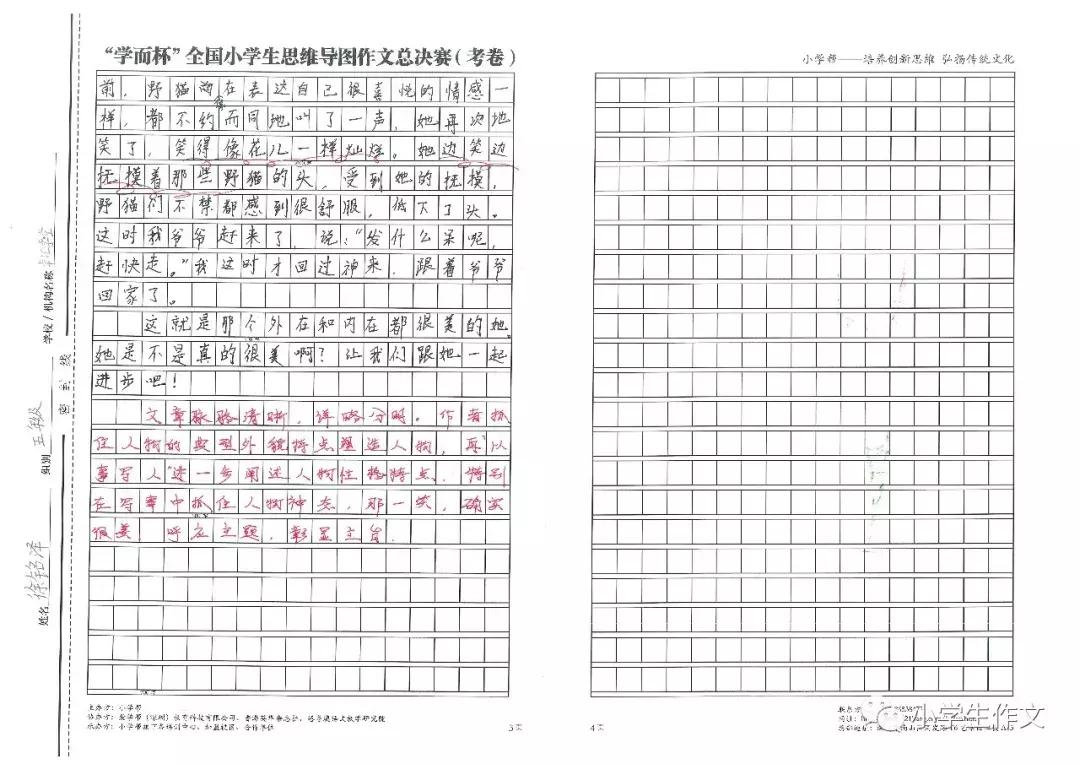 “学而杯”全国小学生思维导图作文总决赛（考卷）
前，野猫而在表达自己很喜悦的情感一
样，都不约而同地叫了一声，她再次地
笑了，笑得像花儿一样灿烂。她边笑边
抚摸着那些野猫的头，受到她的抚摸，
野猫们不禁都感到很舒服，低下了头。
这时我爷爷赶来了，说：“发什么呆呢，
赶快走。”我这时才回过神来，跟着爷爷
回家了。
这就是那个外在和内在都很美的她。
她是不是真的很美啊？让我们跟她一起
进步吧！
文章脉络清晰，详略分明。作者抓
住人物的典型外貌特点塑造人物，再“以
事写人”进一步阐述人物性格特点，特别
在写事中抓住人物神态，那一笑，确实
很美！呼应主题，彰显主旨.
主办方：小学帮
承办方：小学帮旗下各培训中心、加盟校区、合作单位
3页
小学帮——培养创新思维 弘扬传统文化
4页
小学生作文
学校／机构名称
组别 五年级
姓名 徐铭泽
密 封 线